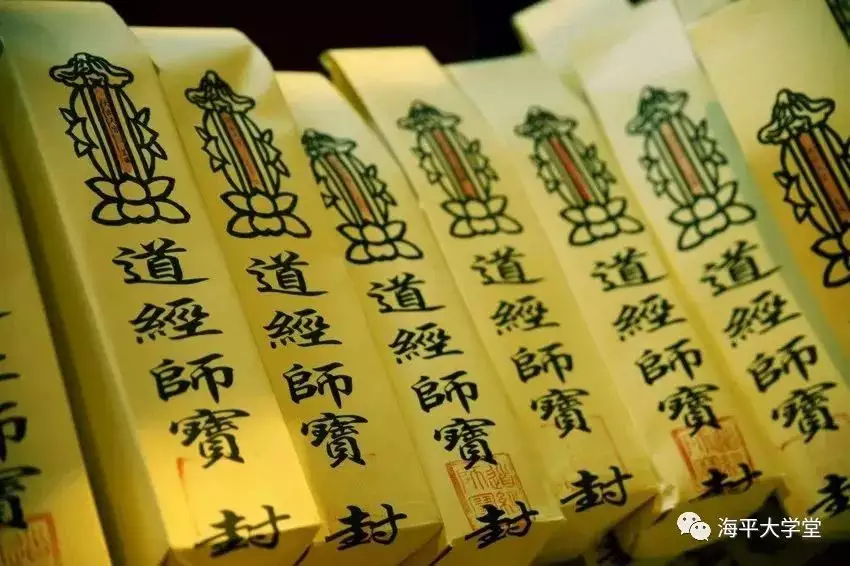 道經師寶 封
道經師寶 封
道經師寶 封
道經師寶 封
道經師寶 封
道經師寶 封
道經師寶 封
海平大学堂